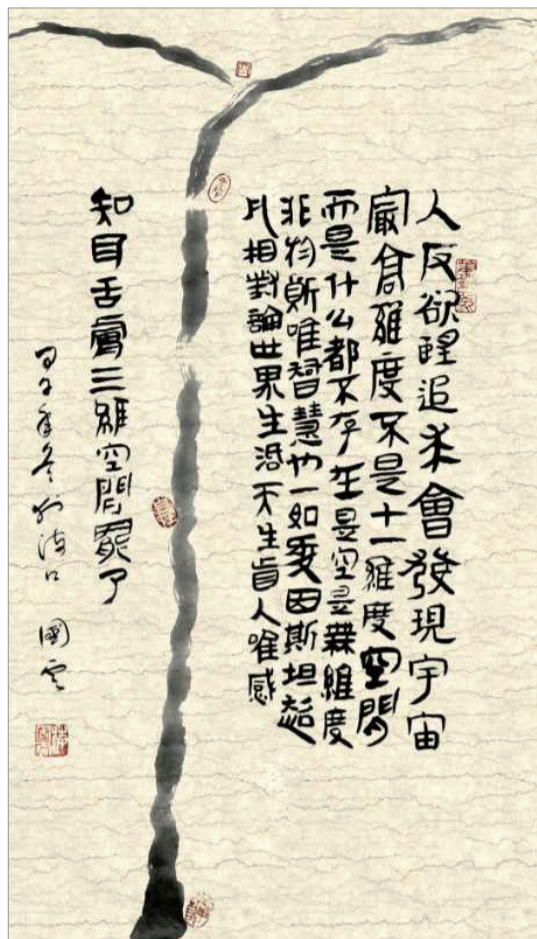 人反欲醒追求會發現宇宙
最高維度不是十一維度空間
而是什么都不存在是空是無維度
非物質唯智慧也一如愛因斯坦超
凡相對論世界生活天生盲人唯感
知耳舌膚三維空間罷了
年冬於海口 國雲